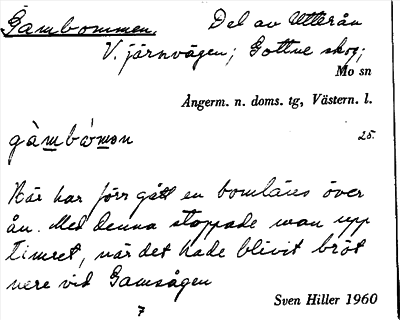 Gambommen. Del av Utterån
V. järnvägen; Gottne skog;
Mo sn
Ångerm. n. doms. tg, Västern. l.
gàmbòmən 25.
Här har förr gått en bomläns över
ån. Med denna stoppade man upp
timret, när det hade blivit bröt
nere vid Gamsågen
7
Sven Hiller 1960